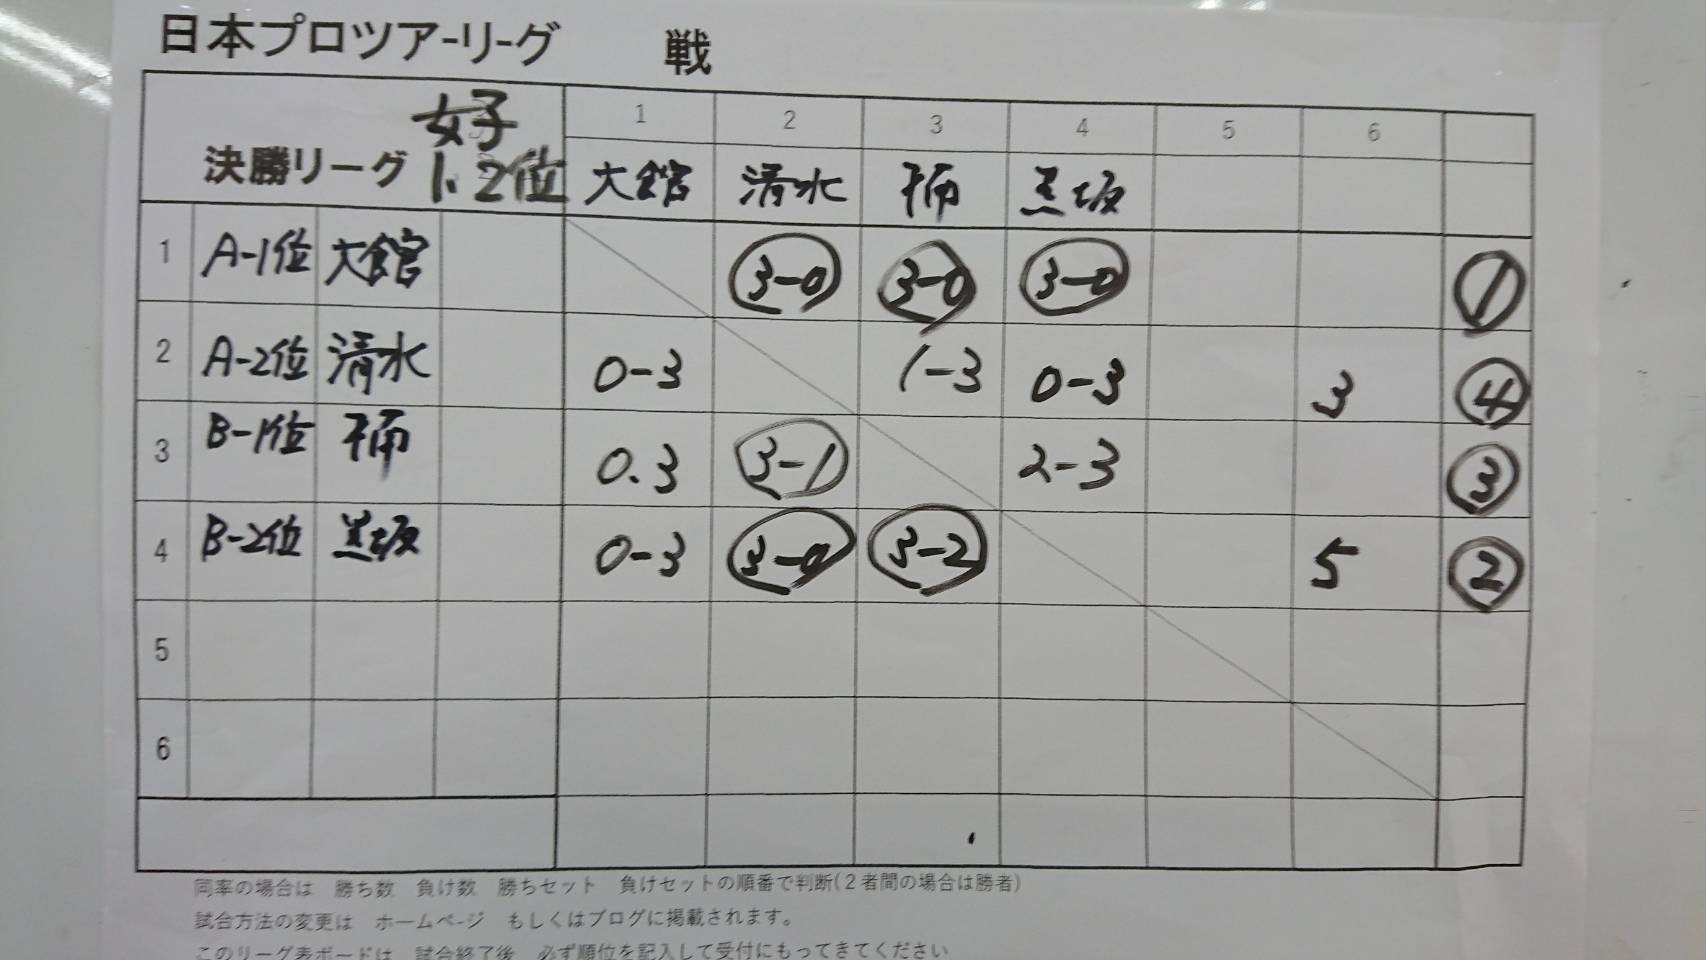 日本プロツアーリーグ 戦
決勝リーグ 女子 1、2位
1 2 3 4 5 6
大館 清水 干雨 黒坂
1 A-1位 大館 3-0 3-0 3-0 ①
2 A-2位 清水 0-3 1-3 0-3 3 ④
3 B-1位 0.3 3-1 2-3 ③
4 B-2位 黒坂 0-3 3-0 3-2 5 ②
5
6
同率の場合は 勝ち数 負け数 勝ちセット 負けセットの順番で判断(2者間の場合は勝者)
試合方法の変更は ホームページ もしくはブログに掲載されます。
このリーグ表ボードは 試合終了後 必ず順位を記入して受付にもってきてください